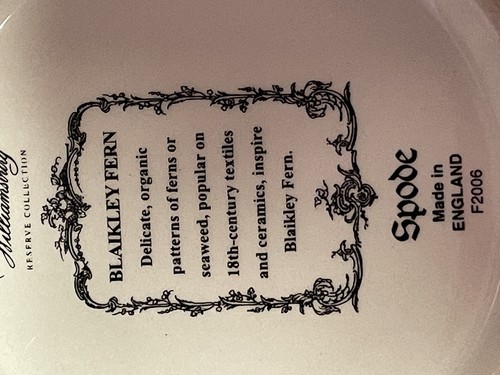 Williamsburg
RESERVE COLLECTION
BLAIKLEY FERN
Delicate, organic
patterns of ferns or
seaweed, popular on
18th-century textiles
and ceramics, inspire
Blaikley Fern.
Spode
Made in
ENGLAND
F2006